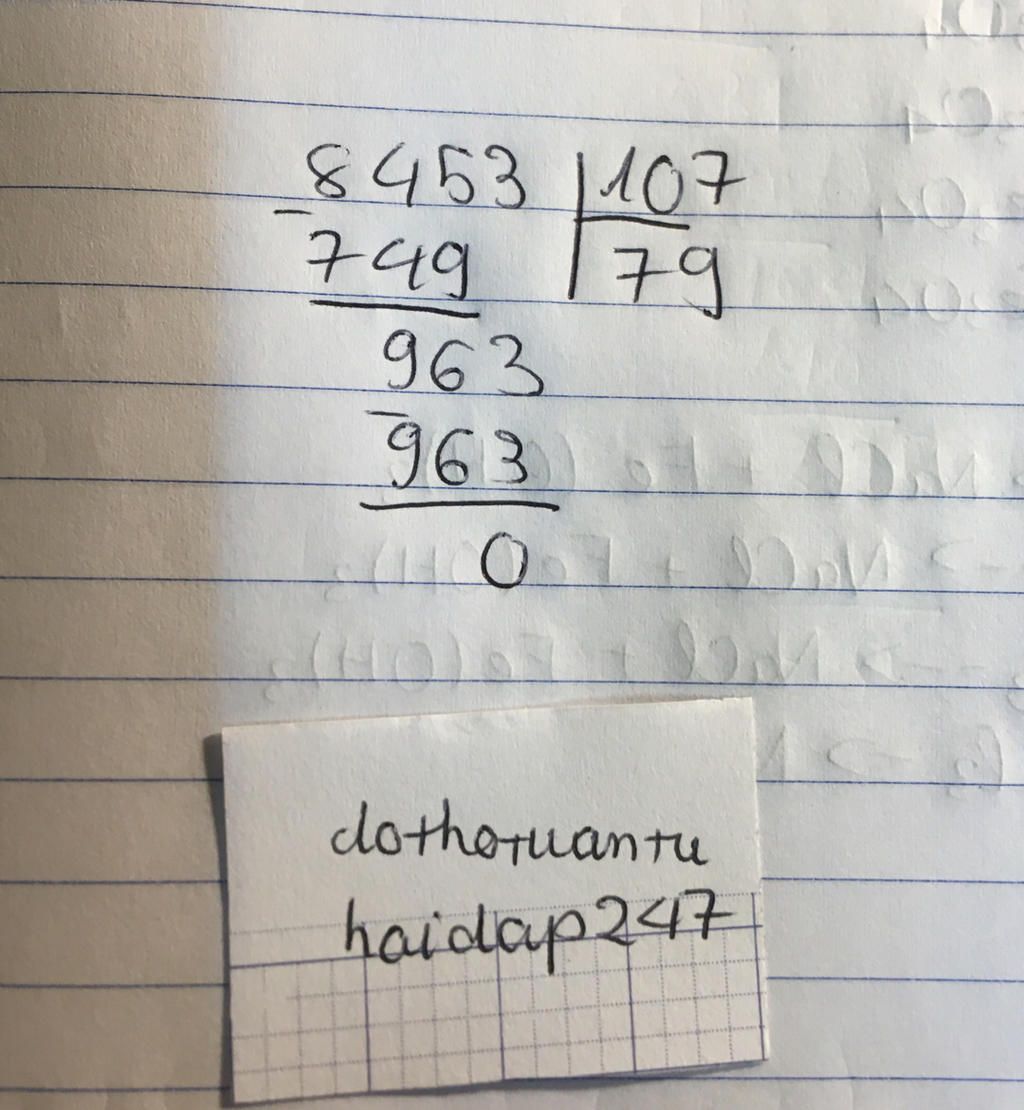 8453 107
- 749 79
963
- 963
0
dothotuantu
haidap247